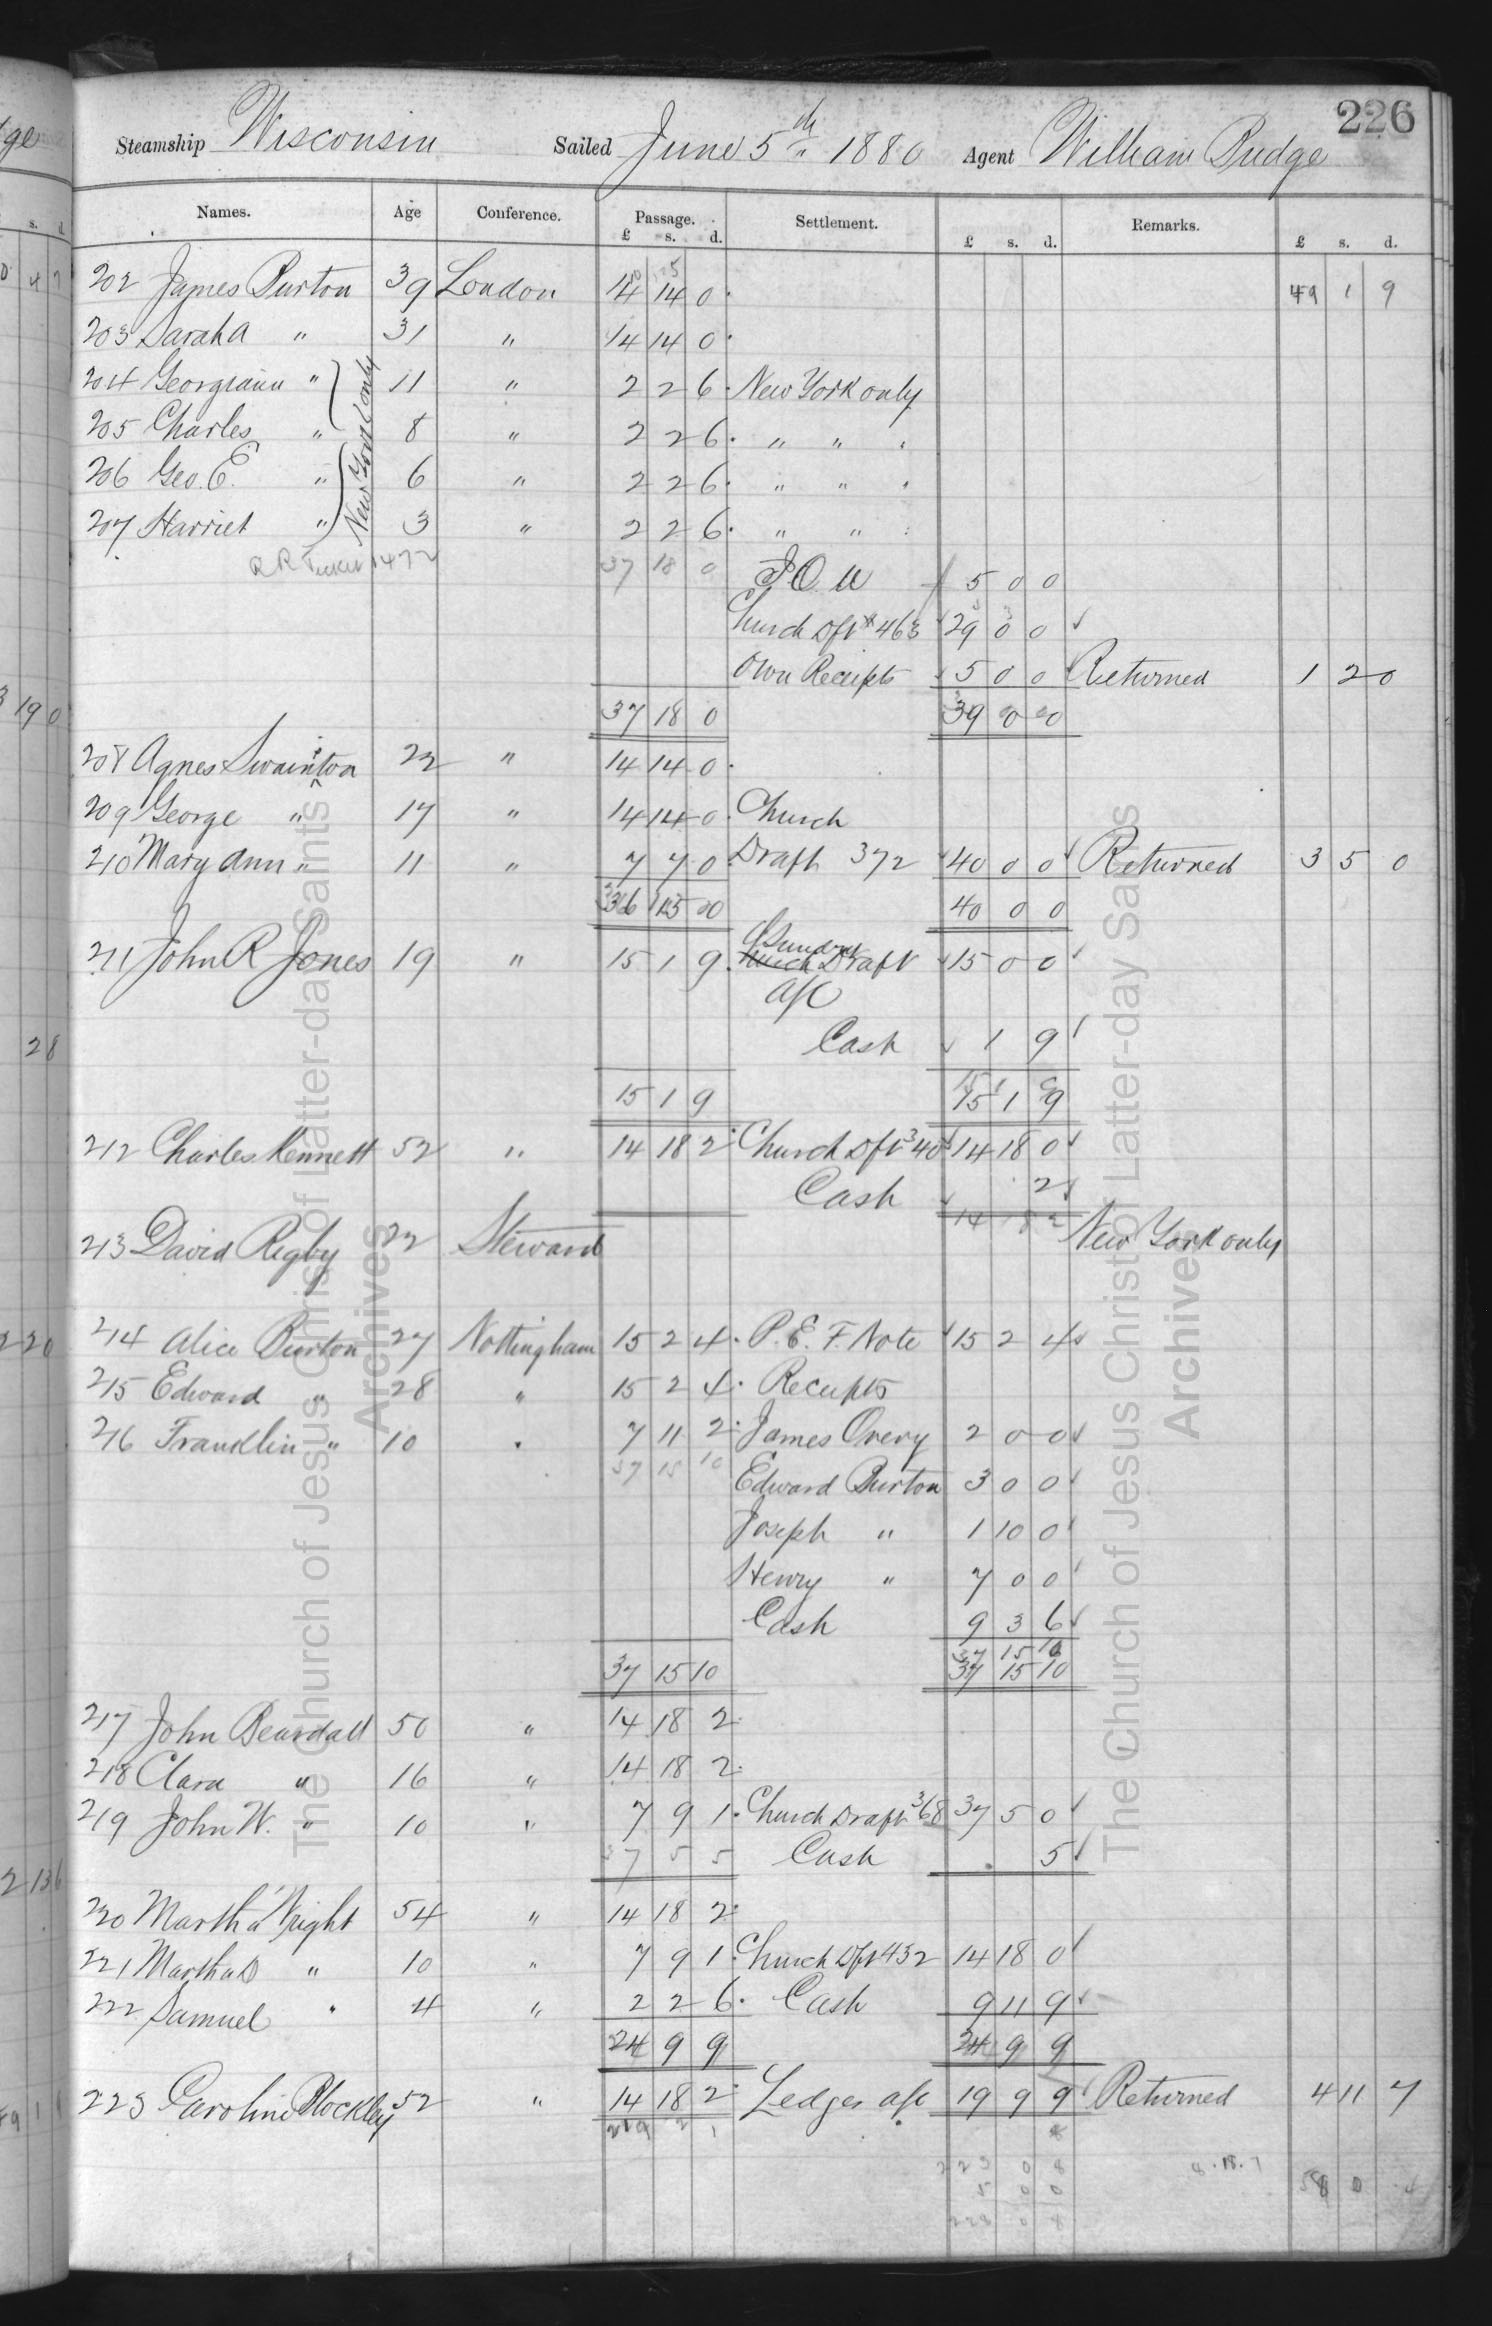 226
Steamship Wisconsin Sailed June 5th 1880 Agent William Budge
Names. Age Conference. Passage. Settlement. Remarks.
£ s. d. £ s. d. £ s. d.
202 James Burton 39 London 14 14 0 49 1 9
203 Sarah A " 31 " 14 14 0
204 Georgiann " 11 " 2 2 6 New York only
205 Charles " 8 " 2 2 6 " "
206 Geo. E. " 6 " 2 2 6 " "
207 Harriet " 3 " 2 2 6 " "
New York only
R R Ticket 1472 37 18 0 I O U 5 0 0
Church Dft 463 29 0 0
Own Receipts 5 0 0 Returned 1 2 0
37 18 0 39 0 0
208 Agnes Swainton 22 " 14 14 0
209 George " 17 " 14 14 0 Church
210 Mary Ann " 11 " 7 7 0 Draft 372 40 0 0 Returned 3 5 0
36 15 0 40 0 0
211 John R Jones 19 " 15 1 9 Sundry Draft 15 0 0
a/c
Cash 1 9
15 1 9 15 1 9
212 Charles Kennett 52 " 14 18 2 Church Dft 340 14 18 0
Cash 2
14 18 2
213 David Rigby 22 Steward New York only
214 Alice Burton 27 Nottingham 15 2 4 P. E. F. Note 15 2 4
215 Edward " 28 " 15 2 4 Receipts
216 Franklin " 10 " 7 11 2 James Overy 2 0 0
37 15 10 Edward Burton 3 0 0
Joseph " 1 10 0
Henry " 7 0 0
Cash 9 3 6
37 15 10
37 15 10 37 15 10
217 John Beardall 50 " 14 18 2
218 Clara " 16 " 14 18 2
219 John W. " 10 " 7 9 1 Church Draft 368 37 5 0
37 5 5 Cash 5
220 Martha Wright 54 " 14 18 2
221 Martha D " 10 " 7 9 1 Church Dft 432 14 18 0
222 Samuel " 4 " 2 2 6 Cash 9 11 9
24 9 9 24 9 9
223 Caroline Blockley 52 " 14 18 2 Ledger a/c 19 9 9 Returned 4 11 7
219 2 1
223 0 8
5 0 0
228 0 8
The Church of Jesus Christ of Latter-day Saints
Archives
The Church of Jesus Christ of Latter-day Saints
Archives